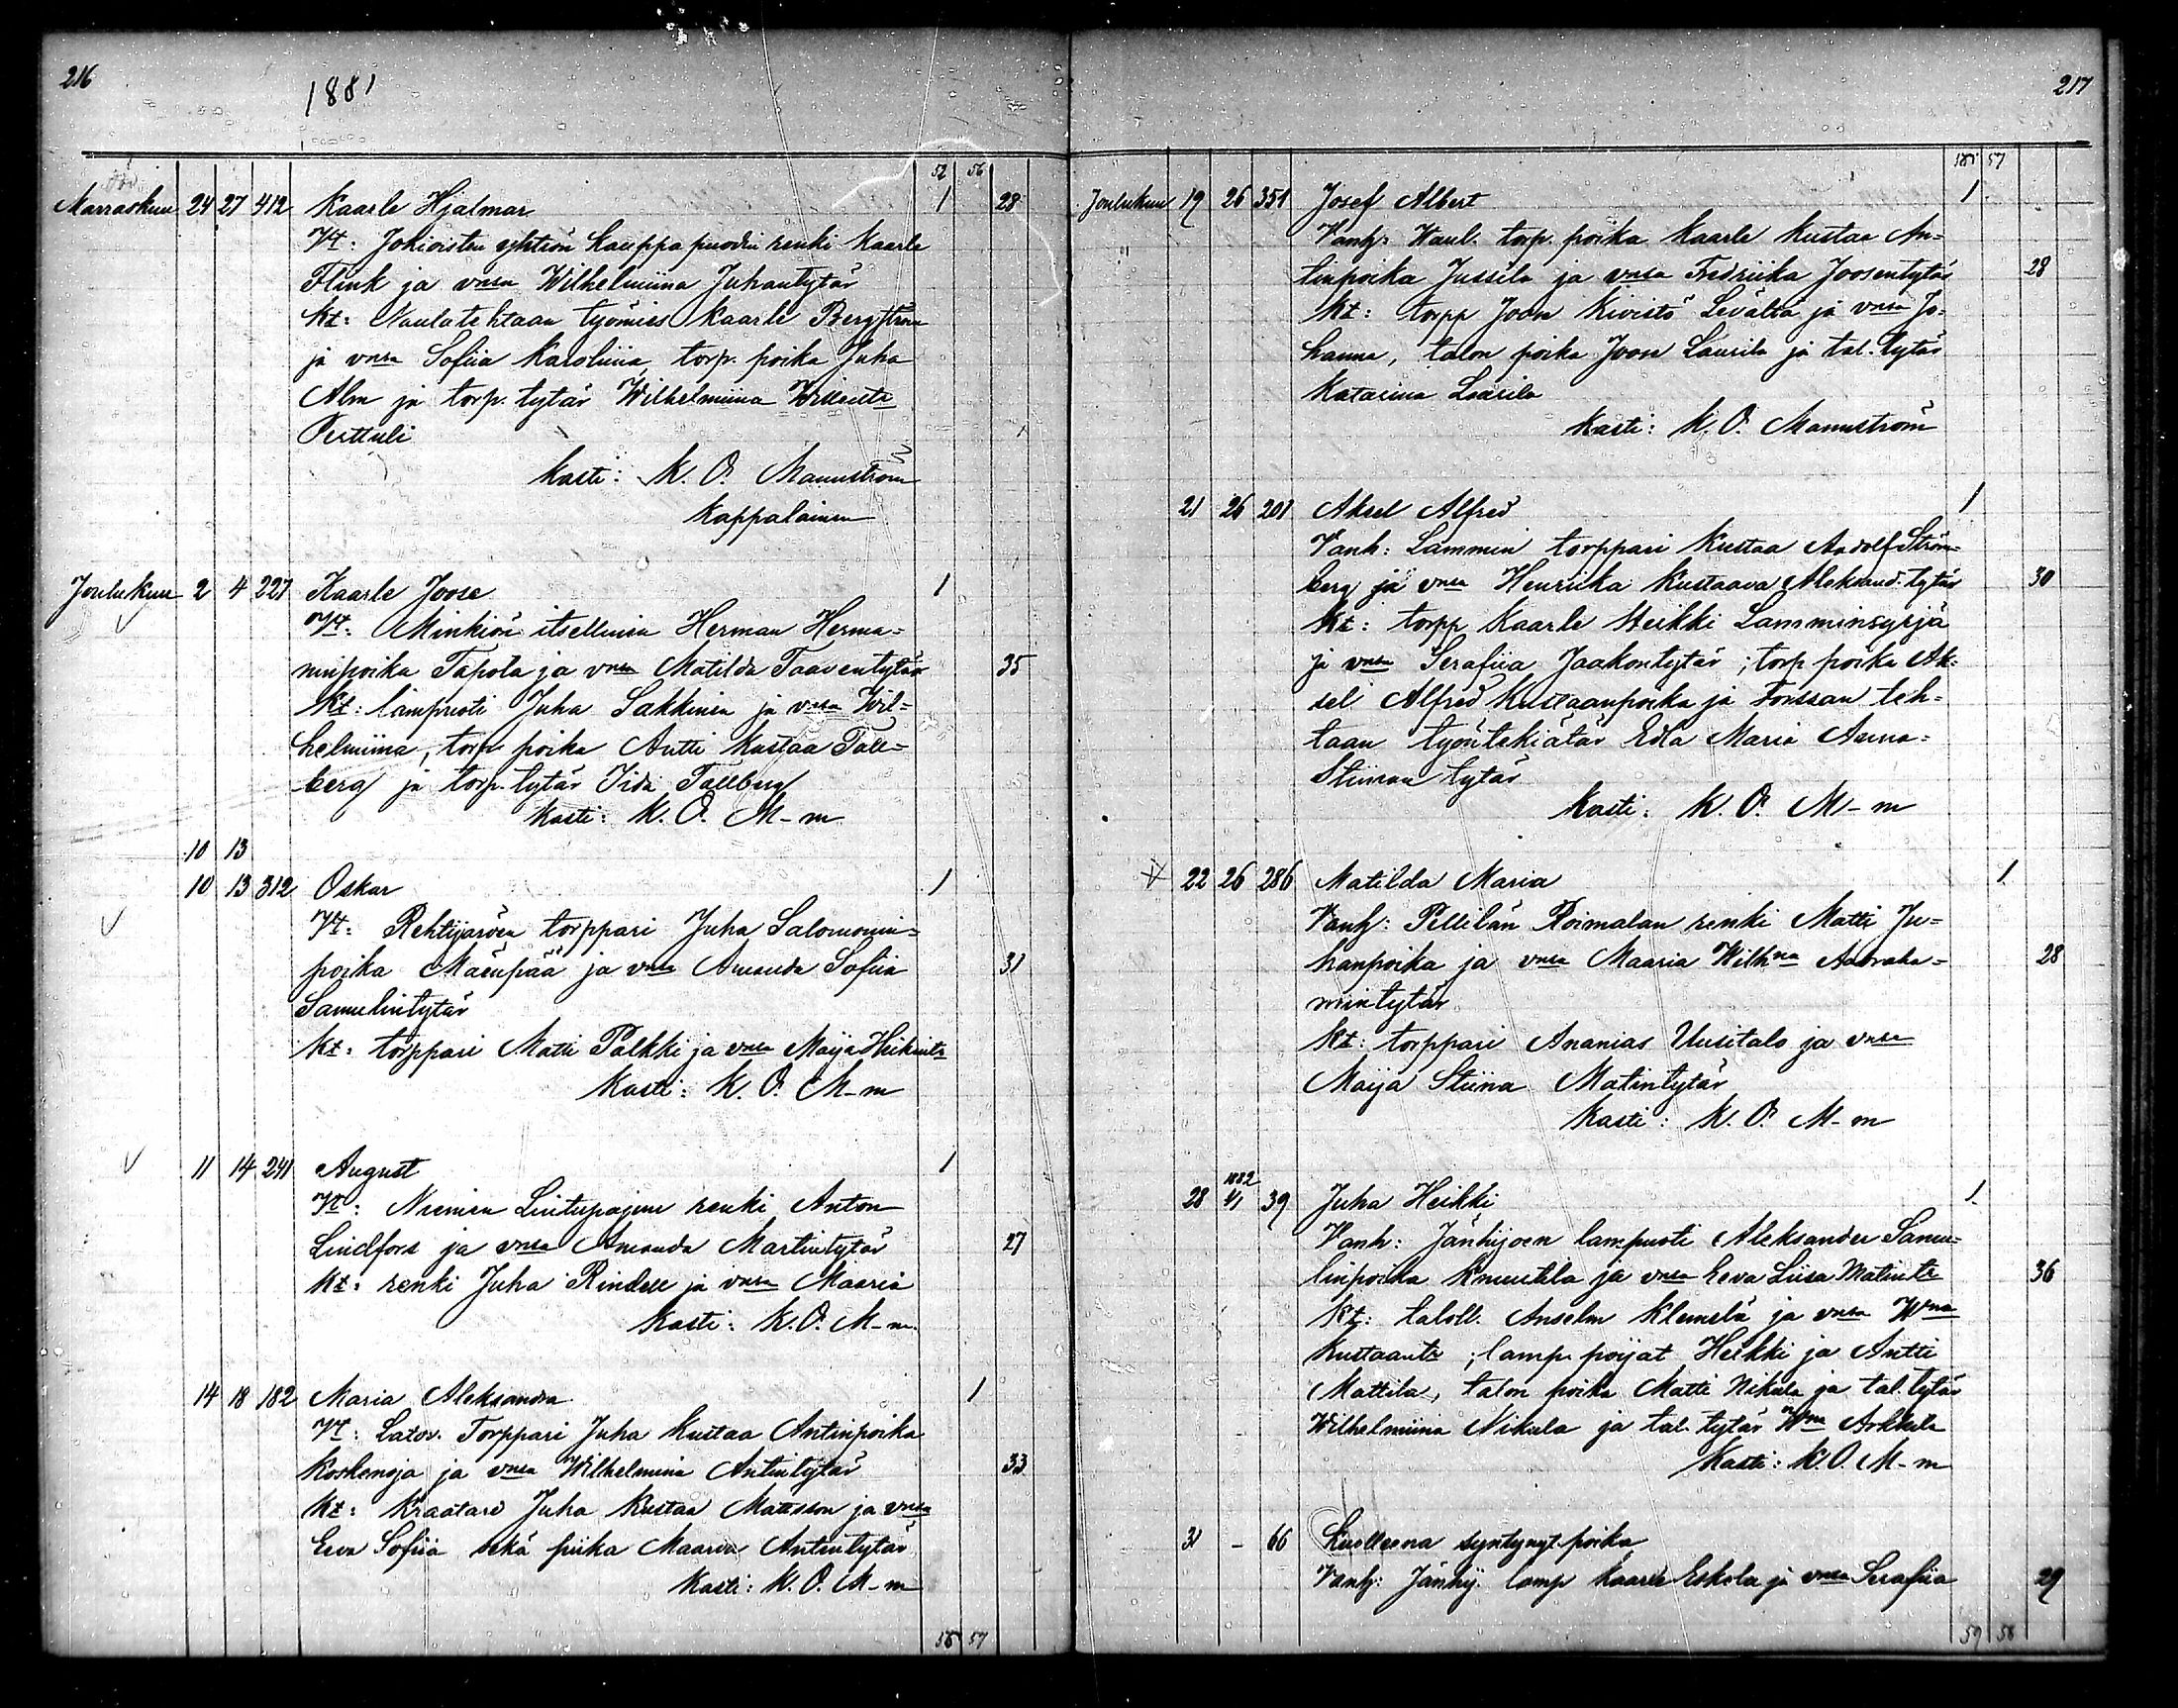 216
1881
52 56
Marraskuu 24 27 412 Kaarle Hjalmar 1 28
Vt: Jokioisten yhtiön kauppapuodin renki Kaarle
Flink ja vmsa Wilhelmiina Juhantytär
Kt: Naulatehtaan työmies Kaarle Bergström
ja vmsa Sofiia Karoliina, torp. poika Juha
Alm ja torp. tytär Wilhelmiina
Perttuli
Kasti: K. O. Mannström
Kappalainen
Joulukuu 2 4 227 Kaarle Joose 1
Vt: Minkiön itsellinen Herman Herma=
ninpoika Tapola ja vmsa Matilda Taaventytär 35
Kt: lampuoti Juha Sakkinen ja vmsa Wil=
helmiina, torp. poika Antti Kustaa Tall=
berg ja torp. tytär Iida Tallberg
Kasti: K. O. M-m
10 13
10 13 312 Oskar 1
Vt: Rehtijärven torppari Juha Salomonin=
poika Mäenpää ja vmsa Amanda Sofiia 31
Samulintytär
Kt: torppari Matti Palkki ja vmsa Maija Heikint:
Kasti: K. O. M-m
11 14 241 August 1
Vt: Niemen Lintupajun renki Anton
Lindfors ja vmsa Amanda Martintytär 27
Kt: renki Juha Rindell ja vmsa Maaria
Kasti: K. O. M-m.
14 18 182 Maria Aleksandra 1
Vt: Latov. Torppari Juha Kustaa Antinpoika
Koskenoja ja vmsa Wilhelmina Antintytär 33
Kt: Kraatari Juha Kustaa Mattsson ja vmsa
Eeva Sofiia sekä piika Maaria Antintytär
Kasti: K. O. M-m
57
217
57
Joulukuu 19 26 351 Josef Albert 1
Vanh: torp. poika Kaarle Kustaa An=
tinpoika Jussila ja vmsa Fredriika Joosentytär 28
Kt: torpp Joon Kivistö Levältä ja vmsa Jo=
hanna, talon poika Joose Laurila ja tal. tytär
Katariina Laurila
Kasti: K. O. Mannström
21 26 201 Aksel Alfred 1
Vanh: Lammin torppari Kustaa Aadolf Ström=
berg ja vmsa Henriika Kustaava Aleksand. tytär 30
Kt: torpp. Kaarle Heikki Lamminsyrjä
ja vmsa Serafiia Jaakontytär; torp poika Ak=
sel Alfred Kustaanpoika ja Forssan teh=
taan työntekiätär Edla Maria Anna=
Stiinan tytär
Kasti: K. O. M-m
22 26 286 Matilda Maria 1
Vanh: Pellilän Roimalan renki Matti Ju=
hanpoika ja vmsa Maaria Wilhna Aabraha= 28
mintytär
Kt: torppari Ananias Uusitalo ja vmsa
Maija Stiina Matintytär
Kasti: K. O. M-m
1882
28 4/1 39 Juha Heikki 1
Vanh: Jänhijoen lampuoti Aleksander Samu=
linpoika Knuutila ja vmsa Eeva Liisa Matint: 36
Kt: taloll. Anselm Klemelä ja vmsa Wma
Kustaant:; lamp. pojat Heikki ja Antti
Mattila, talon poika Matti Nikula ja tal. tytär
Wilhelmiina Nikula ja tal. tytär Wma Arkkila
Kasti: K. O. M-m
31 - 66 Kuolleena syntynyt poika
Vanh: Jänhij. lamp Kaarle Eskola ja vmsa Serafiia 29